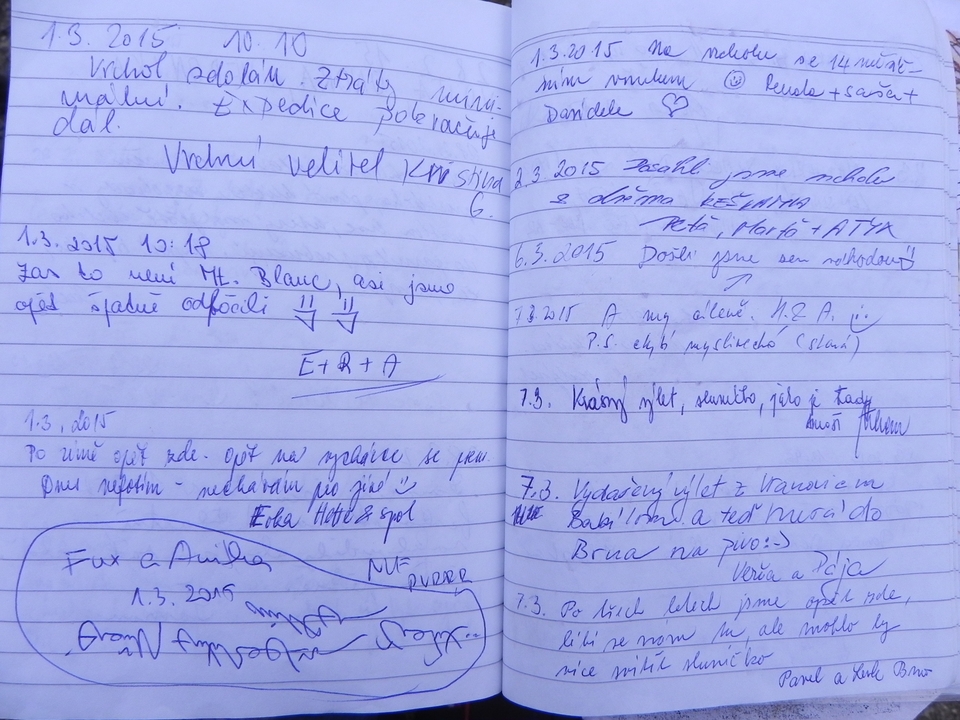 1.3. 2015 10.10
Vrchol zdolán. Ztráty mini-
mální. Expedice pokračuje
dál.
Vrchní velitel Kristina
G.
1.3. 2015 10:18
Zas to není Mt. Blanc, asi jsme
opět špatně odbočili
E+R+A
1.3. 2015
Po zimě opět zde. Opět na
se psem.
Dnes nefotím - nechávám pro jiné
& spol
Fux a Anika
1.3. 2015
1.3.2015 Na vrcholu se 14 měsíč-
ním vnukem ☺ Renata + Saša +
Davidek ♡
2.3 2015 Dosáhli jsme vrcholu
s oběma
Peťa, Marťa + ATYX
6.3.2015 Došli jsme sem náhodou
7.3.2015 A my cíleně. H.Z A.
P.S. chybí (slaná)
7.3. Krásný výlet, sluníčko, jaro je tady
7.3. Vydařený výlet z Vranova
Babí lom a teď hurá do
Brna na pivo :-)
Verča a Pája
7.3. Po třech letech jsme opět zde,
líbí se nám tu, ale mohlo by
více svítit sluníčko
Pavel a Brno